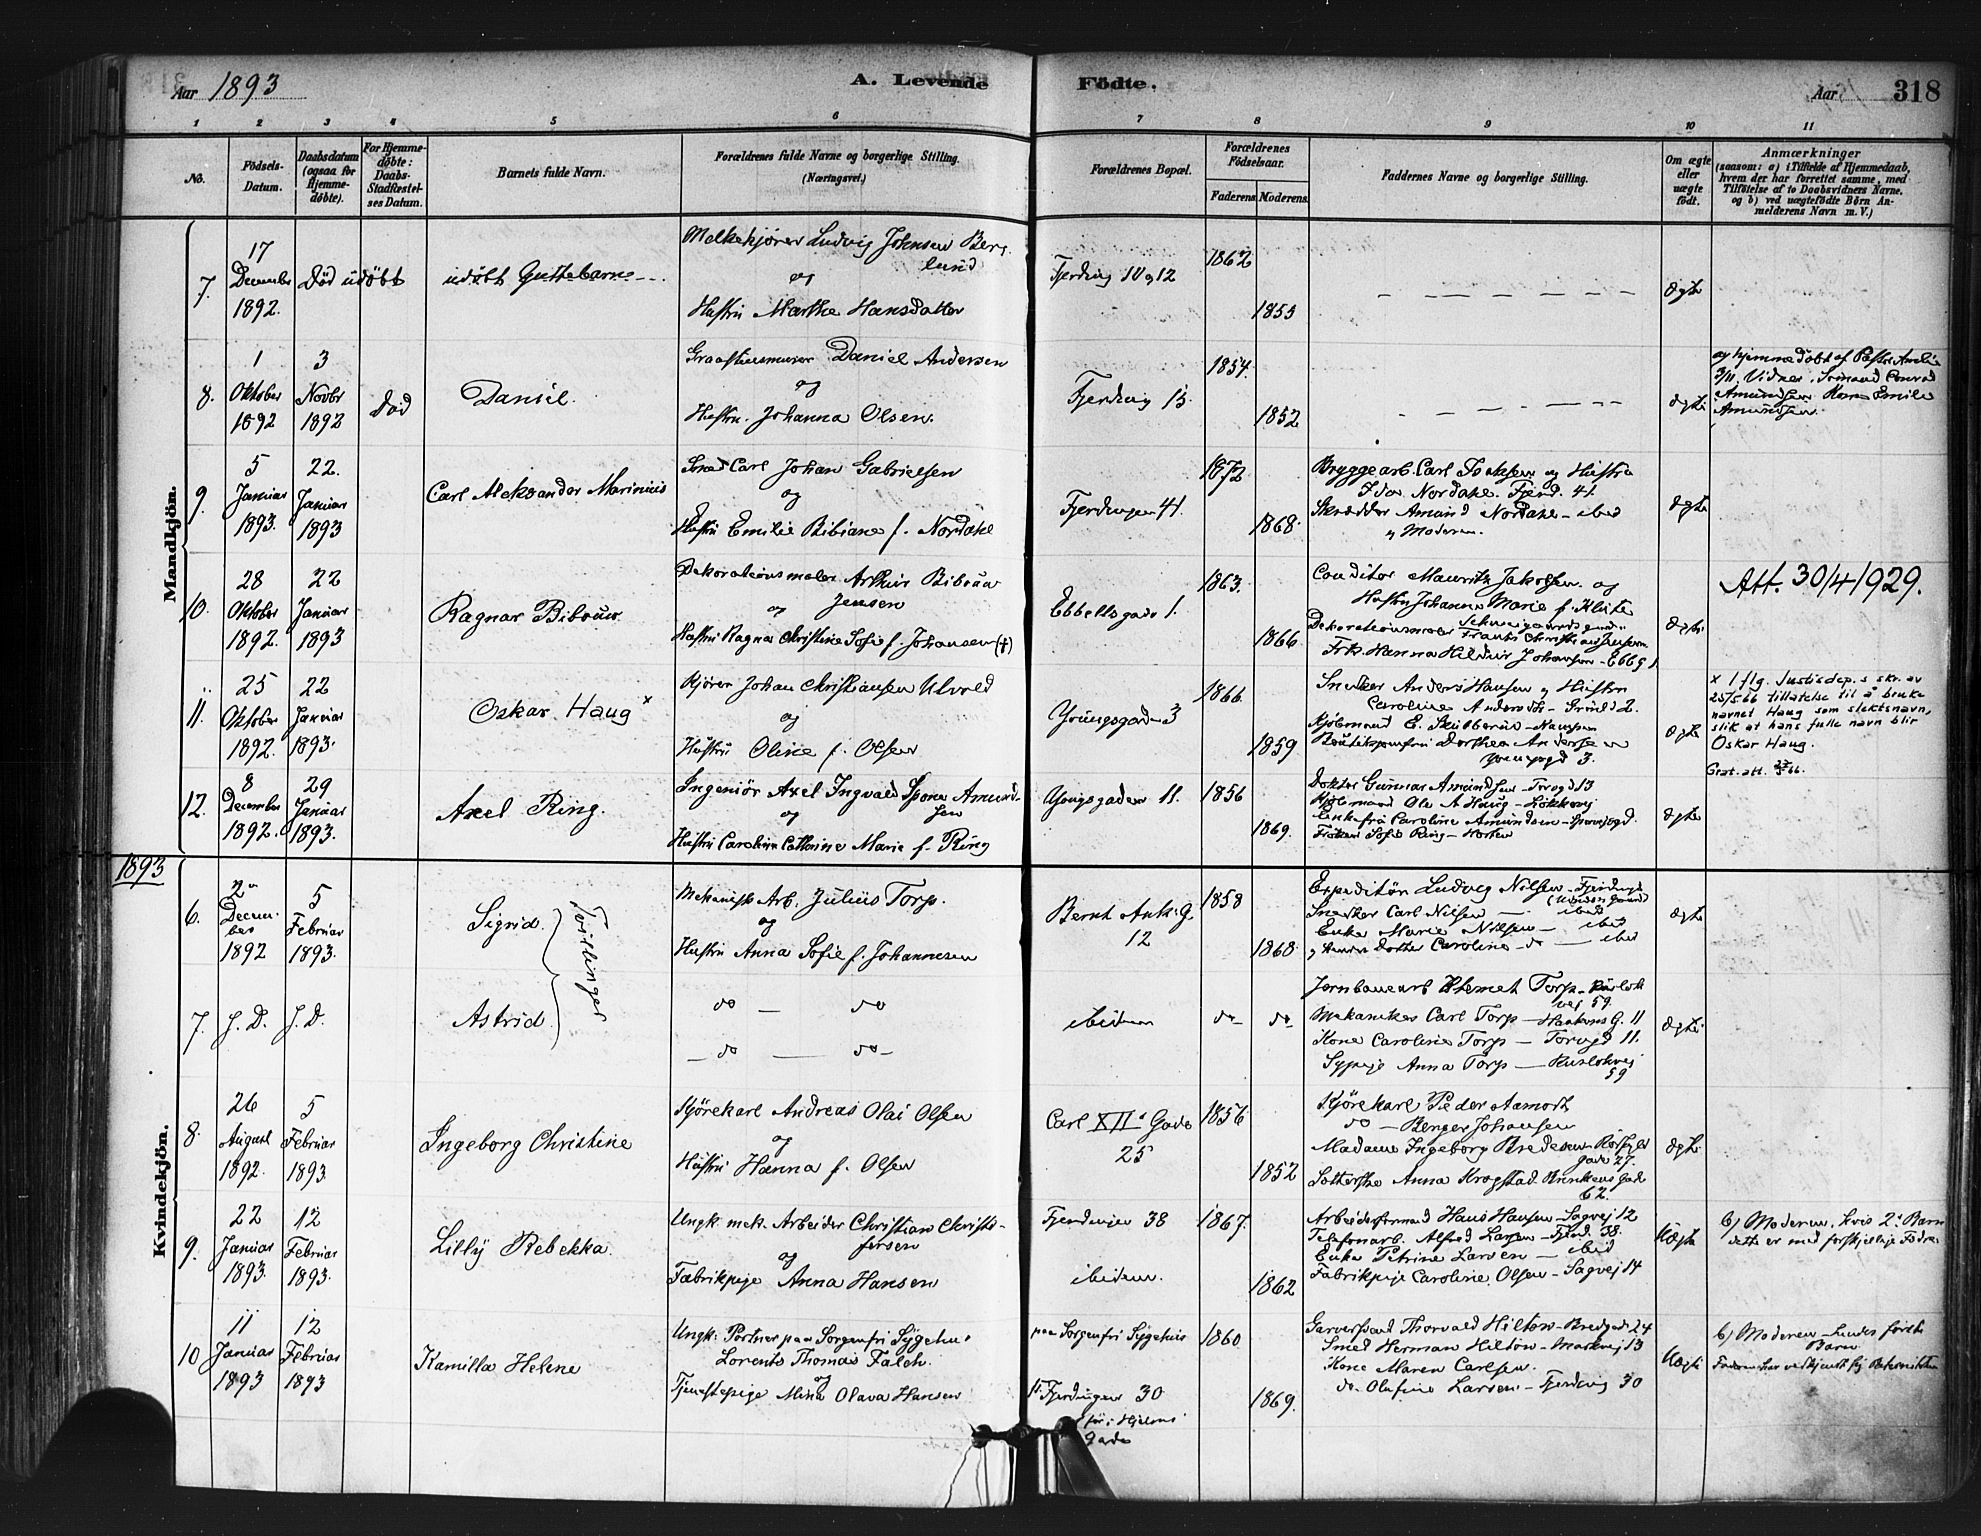 Aar 1893
A. Levende Födte.
Aar
318
1 2 3 4 5 6 7 8 9 10 11
No.
Födsels-Datum.
Daabsdatum (ogsaa for Hjemme-döbte).
For Hjemme-döbte: Daabs-Stadfæstel-ses Datum.
Barnets fulde Navn.
Forældrenes fulde Navne og borgerlige Stilling. (Næringsvei.)
Forældrenes Bopæl.
Forældrenes Födselsaar.
Faderens
Moderens
Faddernes Navne og borgerlige Stilling.
Om ægte eller uægte födt.
Anmærkninger
(saasom: a) i Tilfælde af Hjemmedaab, hvem der har forrettet samme, med Tilföielse af to Daabsvidners Navne. og b) ved uægtefödte Börn An-melderens Navn m. V.)
Mandkjön.
7.
17 December 1892.
död udöbt
udöbt Guttebarn
Melkekjörer Ludvig Johnsen Berg-
lund
og
Hustru Marthe Hansdatter
Fjerding 10 og 12
1862
1853
Ægte
8.
1 Oktober 1892
3 Novbr 1892
död
Daniel.
Graastensmurer Daniel Andersen
og
Hustru Johanna Olsen.
Fjerding 13.
1854.
1852
Ægte
a) hjemmedöbt af Pastor
3/11. Vidner Conrad
Amundsen Emilie
Amundsen.
9.
5 Januar 1893.
22. Januar 1893
Carl Aleksander Marinius
Smed Carl Johan Gabrielsen
og
Hustru Emilie Bibiane f. Nordahl
Fjerdingen 41
1872
1868.
Bryggearb. Carl og Hustru
Ida Nordahl Fjerd. 41.
Skrædder Amund Nordahl - ibid
og Moderen.
Ægte
10.
28 Oktober 1892.
22 Januar 1893
Ragnar Bibow
Dekorationsmaler Arthur Bibow
Jensen
og
Hustru Ragna Christine Sofie f. Johansen (†)
Ebbellsgade 1.
1863.
1866
Conditor Mauritz Jakobsen og
Hustru Johanne Marie f. Klute
Schweigaardsgade
Dekorationsmaler Frants Christian Jensen
Frk. Hanna Hildur Johansen - Ebbg 1
Ægte
Att. 30/4 1929.
11.
25 Oktober 1892.
22 Januar 1893.
Oskar Haug x
Kjörer Johan Christiansen Ulvold
og
Hustru Oline f. Olsen
Youngsgade 3
1866.
1859
Snedker Anders Hansen og Hustru
Caroline Andersdtr - Grönl 2.
Kjöbmand E. Hansen
Butiksjomfru Dorthea Andersen
Youngsgd 3.
Ægte
x I flg. Justisdep.s skr. av
25/5.66 tillatelse til å bruke
navnet Haug som slektsnavn,
slik at hans fulle navn blir
Oskar Haug.
Grat. att.
12.
8 December 1892.
29 Januar 1893.
Axel Ring.
Ingeniör Axel Ingvald Amund-
sen
og
Hustru Caroline Cathrine Marie f. Ring
Youngsgaden 11.
1856
1869.
Doktor Gunnar Amundsen - Torvgd 13
Kjöbmand Ole A Haug - Lökkevej
Enkefru Caroline Amundsen
Fröken Sofie Ring - Horten
Ægte
1893
Kvindekjön.
6.
2 Decem-ber 1892
5 Februar 1893.
Sigrid.
Tvillinger
Mekanisk Arb. Julius Torp.
og
Hustru Anna Sofie f. Johannesen
Bernt Ankers G. 12
1858
1868.
Expeditör Ludvig Nilsen - Fjerdingd
Snedker Carl Nilsen - ibid
Enke Marie Nilsen - ibid
og hendes Datter Caroline - do - ibid
Ægte
7.
J. D.
J. D.
Astrid
do do
do do
ibidem
do
do
Jernbanearb Klemet Torp - Ruselök
vej 59.
Mekaniker Carl Torp - Haakons G. 11
Kone Caroline Torp - Torvgd 11.
Sypige Anna Torp - Ruslökvej
59
Ægte
8.
26 August 1892.
5 Februar 1893.
Ingeborg Christine
Kjörekarl Andreas Olai Olsen
og
Hustru Hanna f. Olsen
Carl XIIs Gade
25
1856
1852
Kjörekarl Peder Aamodt
do - Johansen
Madame Ingeborg Bredesen
gade 27.
Anna Krogstad Gade
62.
Ægte
9.
22 Januar 1893.
12 Februar 1893.
Lilly Rebekka.
Ungk. mek. Arbeider Christian Christo-
fersen
og
Fabrikpige Anna Hansen
Fjerdingen 38
ibidem.
1867.
1862
Arbeidsformand Hans Hansen - Sagvej 12
Telefonarb. Alfred Larsen - Fjerd. 38.
Enke Petrine Larsen - ibid
Fabrikpige Caroline Olsen - Sagvej 14
Uægte
b) Moderen, hvis 2. Barn
dette er med forskjellige Fædre
10
11 Januar 1893
12 Februar 1893
Kamilla Helene
Ungk: Portner paa Sorgenfri Sygehus
Lorents Thomas Falch.
og
Tjenestepige Mina Olava Hansen
paa Sorgenfri Sygehus
Fjerdingen 30
för i
Gade
1860
1869.
Garversvend Thorvald Hilton - Bredgade 24
Smed Herman Hilton - Markvej 13
Kone Maren Carlsen.
do. Olufine Larsen - Fjerding 30
Uægte
b) Moderen - hendes förste
Barn
Faderen har vedkjendt sig Paterniteten